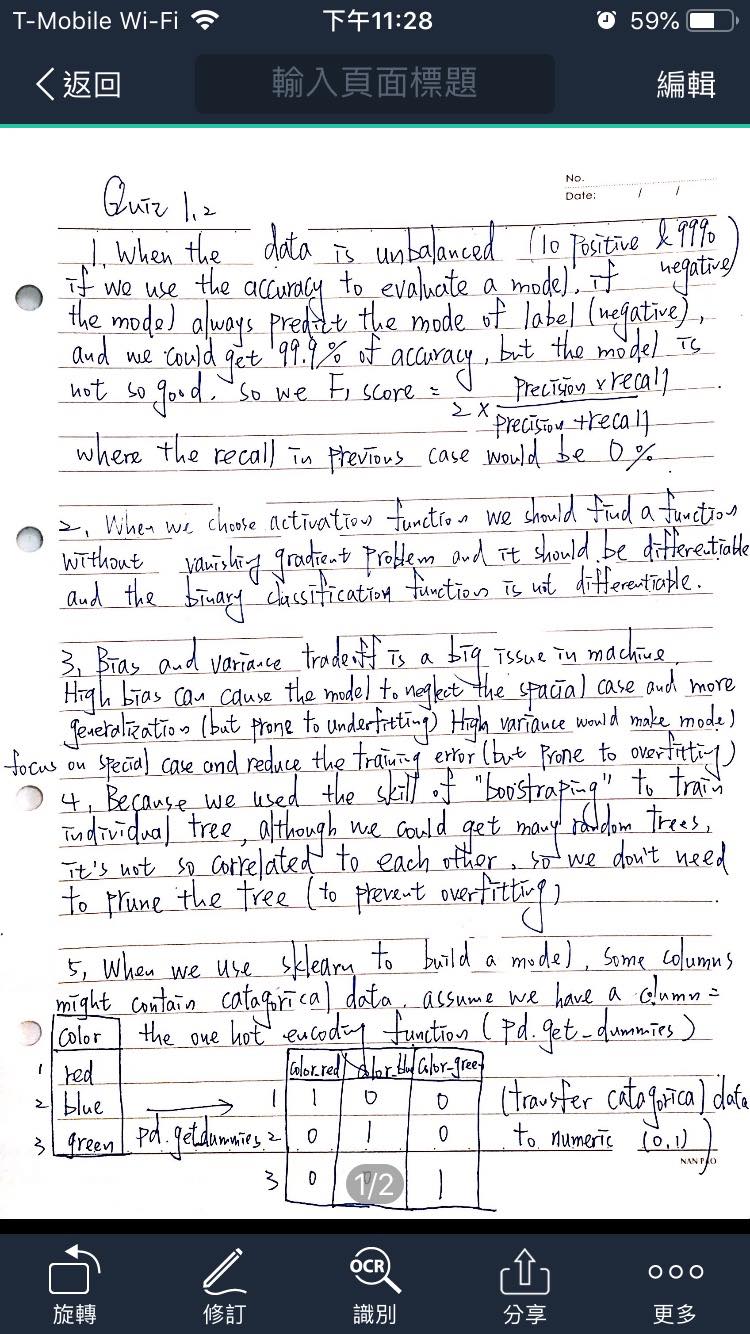 T-Mobile Wi-Fi 下午11:28 59%
返回 輸入頁面標題 編輯
No.
Date: / /
Quiz 1,2
1. When the data is unbalanced (10 positive & 9990 negative)
if we use the accuracy to evaluate a model, if
the model always predict the mode of label (negative),
and we could get 99.9% of accuracy, but the model is
not so good. so we F1 score = 2 × precision × recall / precision + recall
where the recall in previous case would be 0%
2. When we choose activation function we should find a function
without vanishing gradient problem and it should be differentiable
and the binary classification function is not differentiable.
3. Bias and variance tradeoff is a big issue in machine.
High bias can cause the model to neglect the spacial case and more
generalization (but prone to underfitting) High variance would make model
focus on special case and reduce the training error (but prone to overfitting)
4. Because we used the skill of "boostraping" to train
individual tree, although we could get many random trees,
it's not so correlated to each other, so we don't need
to prune the tree (to prevent overfitting)
5. When we use sklearn to build a model, some columns
might contain catagorical data. assume we have a column =
Color the one hot encoding function (pd.get_dummies)
Color_red Color_blue Color_green
1 red
2 blue 1 1 0 0 (transfer catagorical data
3 green pd.getdummies 2 0 1 0 to numeric (0,1))
NAN PAO
3 0 1
1/2
OCR
旋轉 修訂 識別 分享 更多